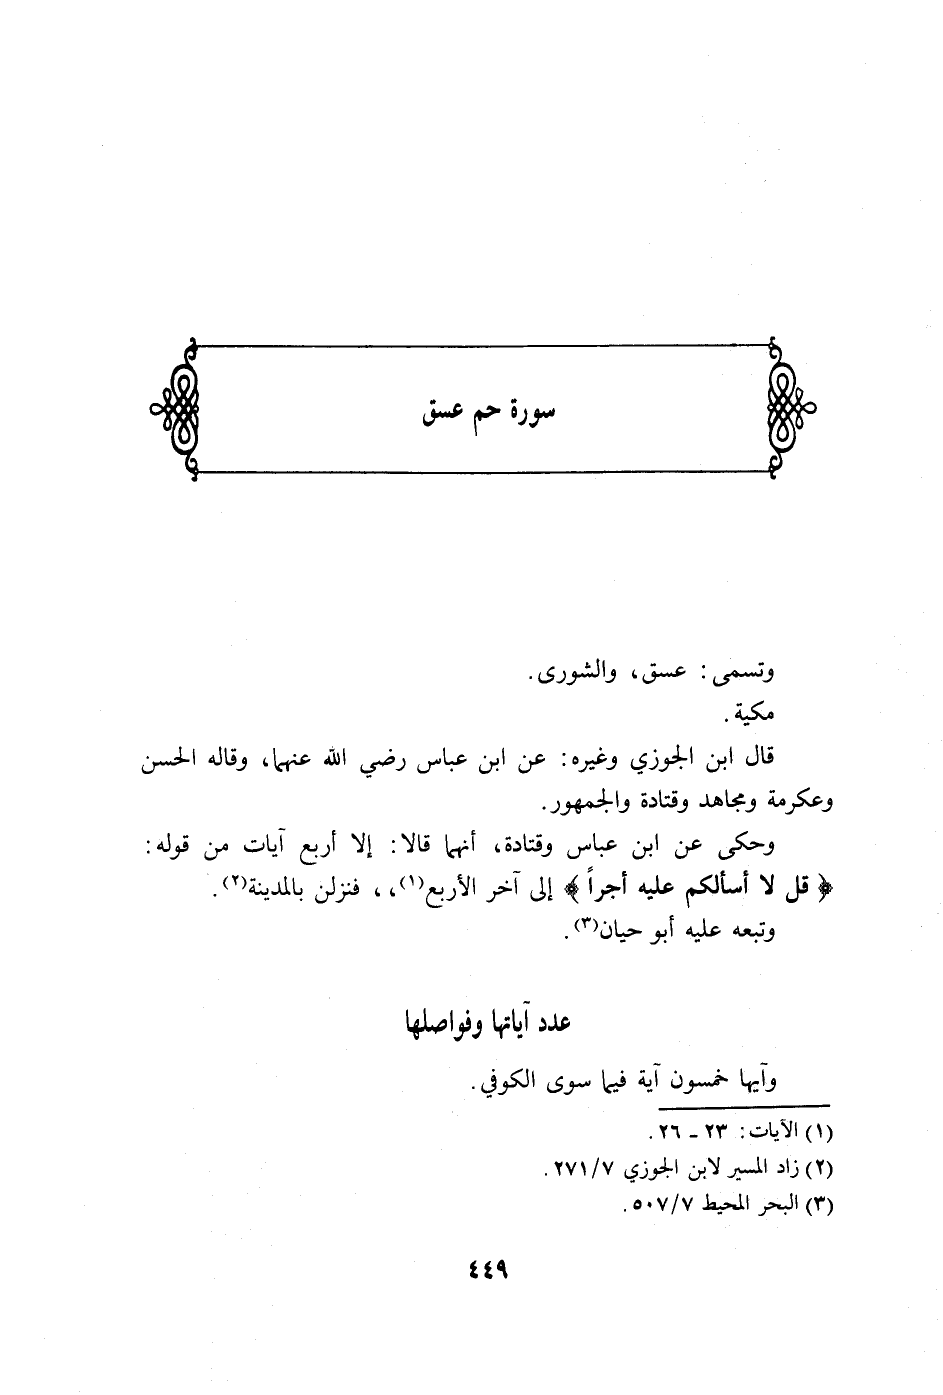 سورة حم عسق
وتسمى: عسق، والشورى.
مكية.
قال ابن الجوزي وغيره: عن ابن عباس رضي الله عنهما، وقاله الحسن
وعكرمة ومجاهد وقتادة والجمهور.
وحكى عن ابن عباس وقتادة، أنهما قالا: إلا أربع آيات من قوله:
﴿ قل لا أسألكم عليه أجراً ﴾ إلى آخر الأربع(١)، ، فنزلن بالمدينة(٢).
وتبعه عليه أبو حيان(٣).
عدد آياتها وفواصلها
وآيها خمسون آية فيما سوى الكوفي.
(١) الآيات: ٢٣ ـ ٢٦.
(٢) زاد المسير لابن الجوزي ٢٧١/٧.
(٣) البحر المحيط ٥٠٧/٧.
٤٤٩